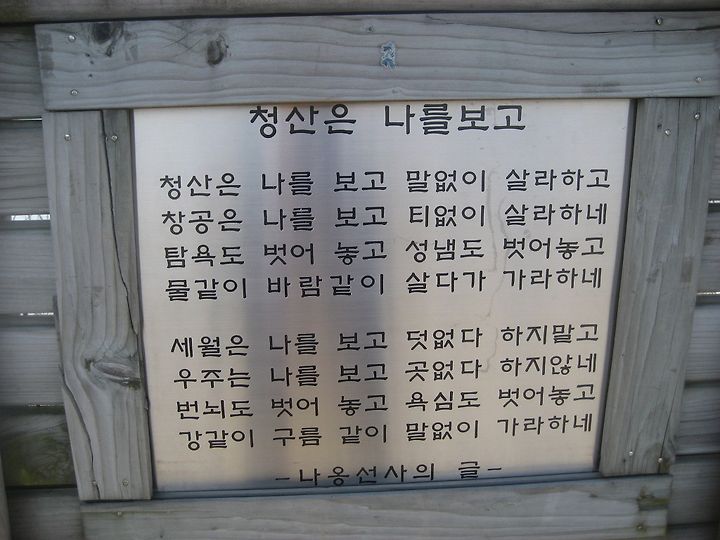 청산은 나를보고
청산은 나를 보고 말없이 살라하고
창공은 나를 보고 티없이 살라하네
탐욕도 벗어 놓고 성냄도 벗어놓고
물같이 바람같이 살다가 가라하네
세월은 나를 보고 덧없다 하지말고
우주는 나를 보고 곳없다 하지않네
번뇌도 벗어 놓고 욕심도 벗어놓고
강같이 구름 같이 말없이 가라하네
-나옹선사의 글-